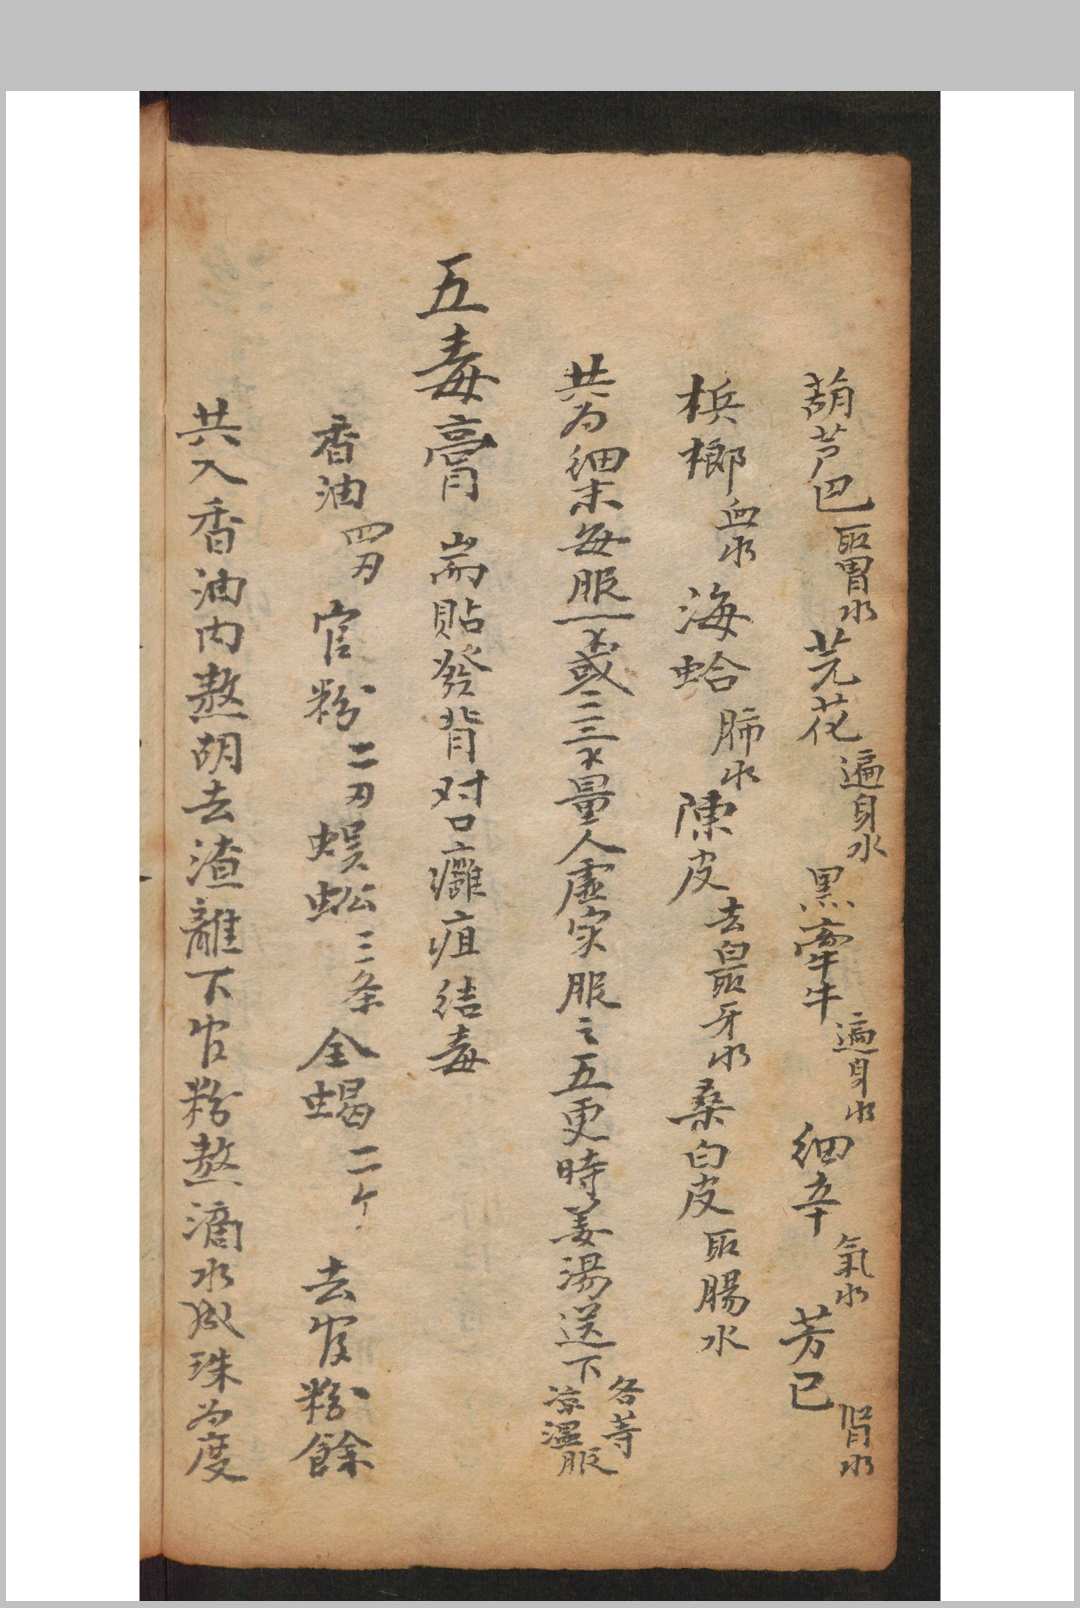 葫芦巴取胃水芫花遍身水黑牽牛遍身水細辛氣水芳已腎水
梹榔血水海蛤肺水陳皮去白取牙水桑白皮取腸水
共为細末每服一錢或二三錢量人虛实服之五更時姜湯送下各等凉溫服
五毒膏 耑貼發背对口癰疽结毒
香油四刃官粉二刃蜈蚣三条全蝎二个去官粉餘
共入香油内熬胡去渣離下官粉熬滴水成珠为度